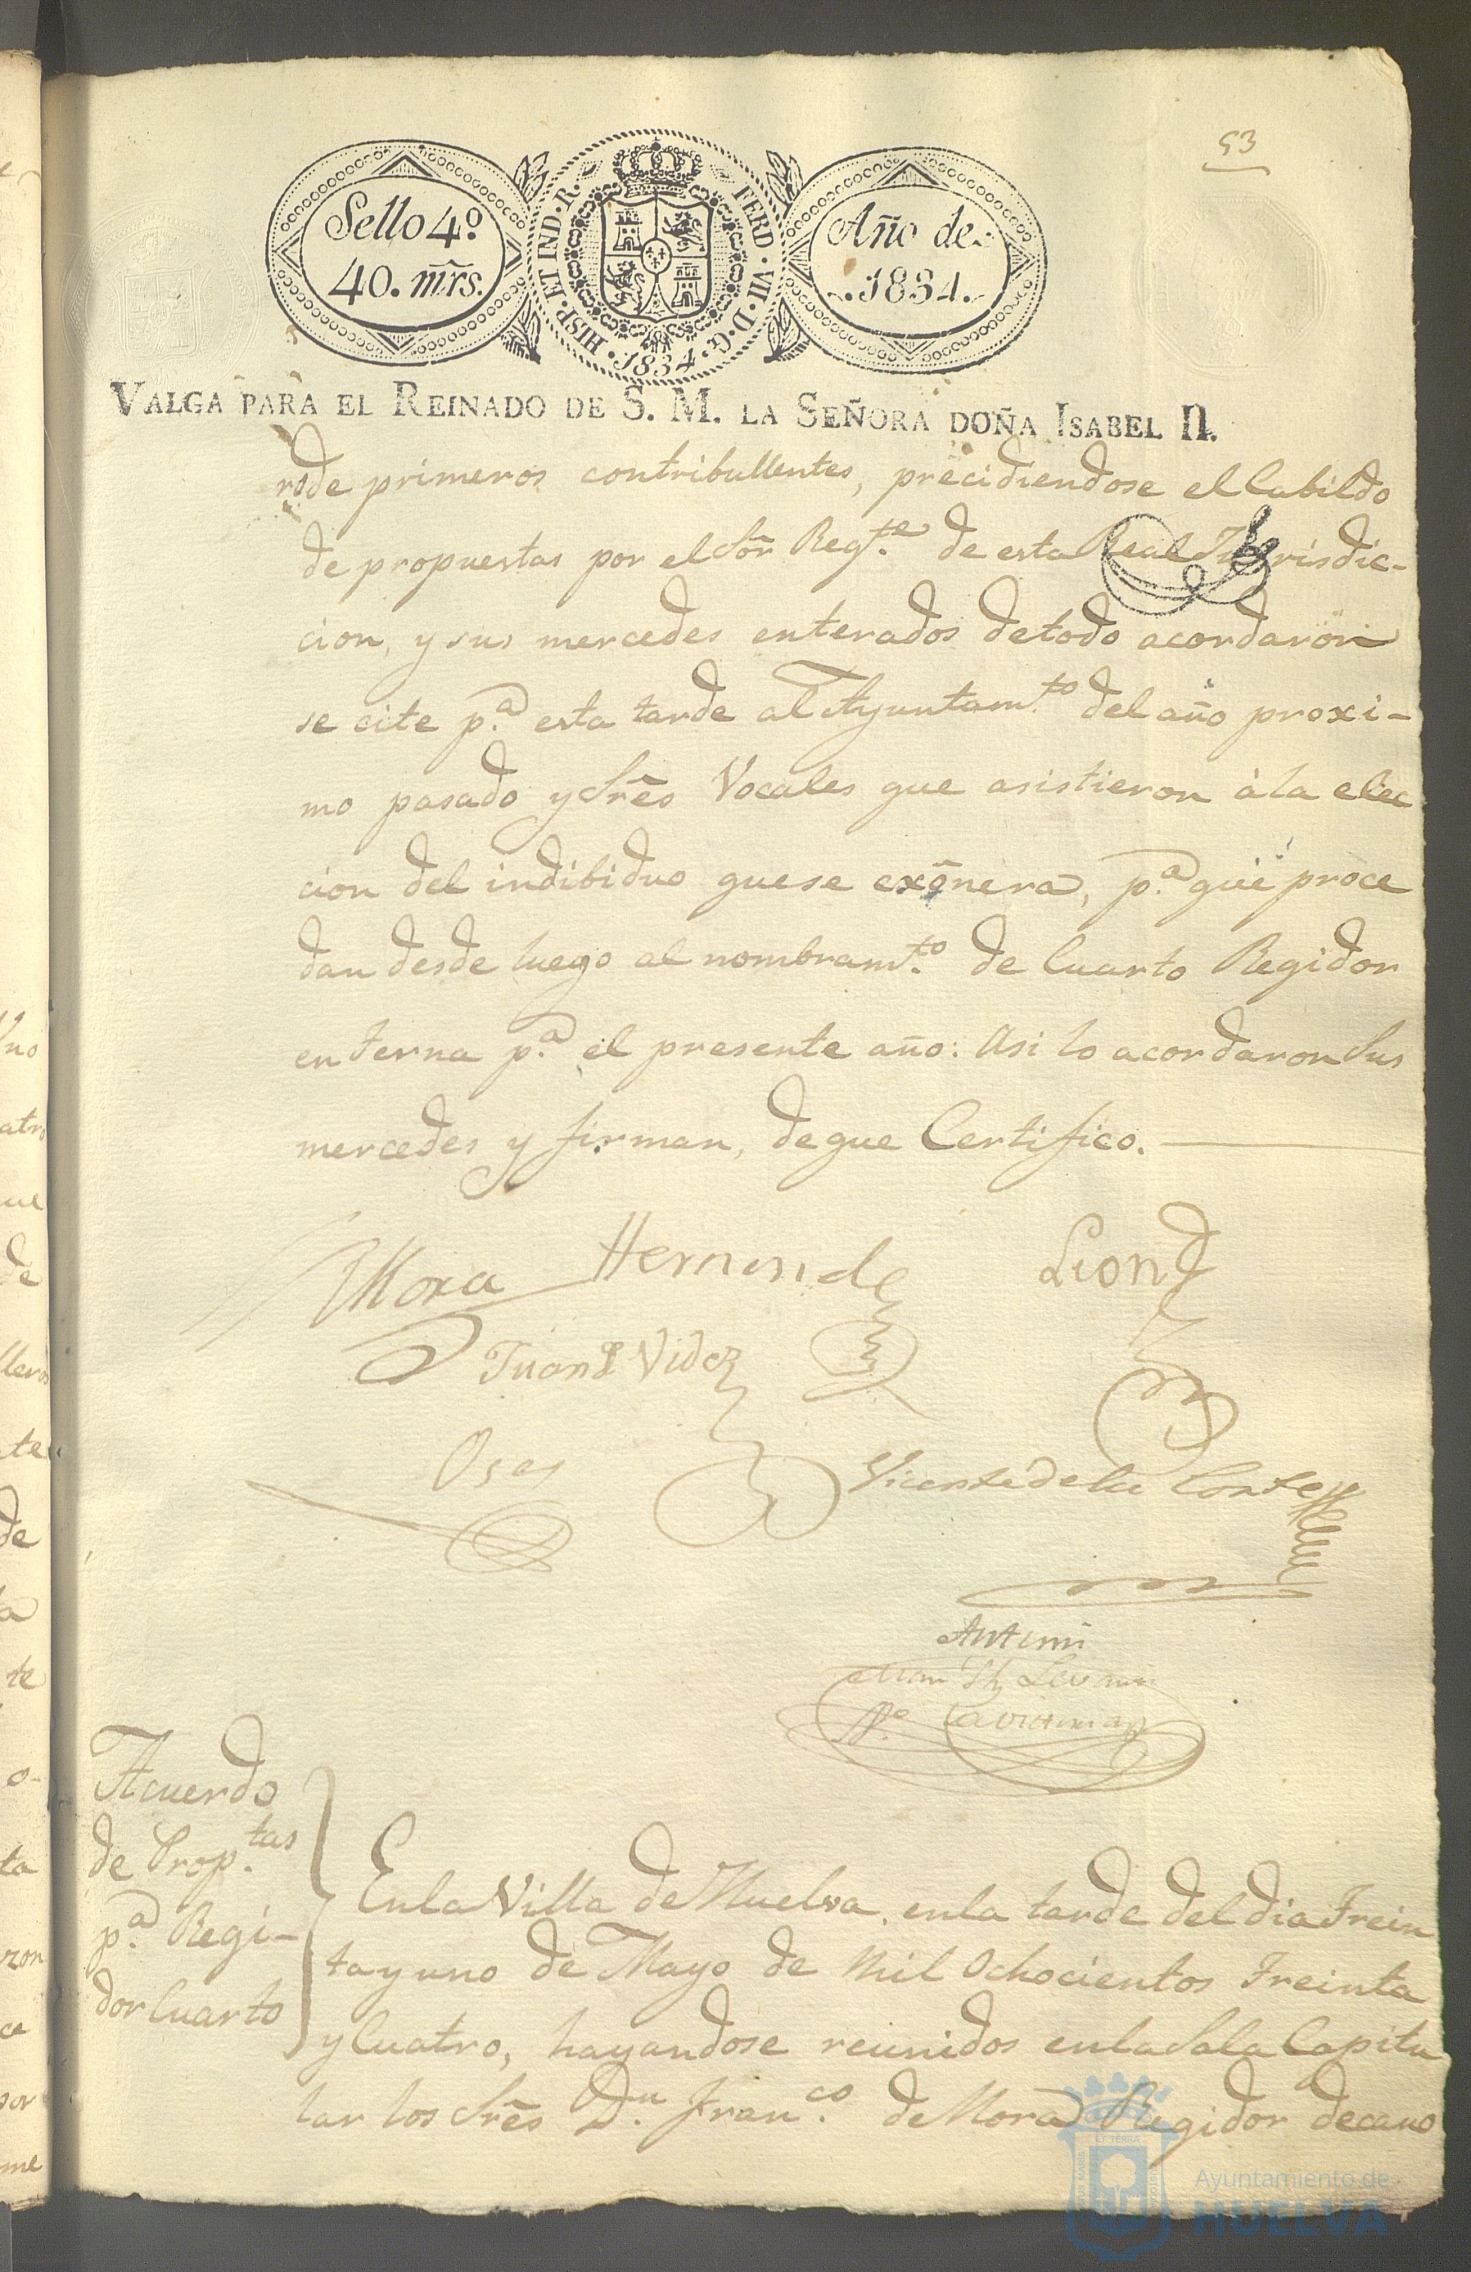 53
Sello 4º
40. mrs.
HISP. ET IND. R. FERD. VII. D. G. 1834.
Año de
.1834.
VALGA PARA EL REINADO DE S. M. LA SEÑORA DOÑA ISABEL II.
de primeros contribullentes, precidiendose el Cabildo
de propuestas por el Sõr Regte. de esta Real Jurisdic-
cion, y sus mercedes enterados detodo acordaron
se cite p.ª esta tarde al Ayuntam.to del año proxi-
mo pasado y Srẽs Vocales que asistieron à la elec
cion del indibiduo quese exõnera, p.ª que proce
dan desde luego al nombram.to de Cuarto Regidor
en terna p.ª el presente año: Asi lo acordaron Sus
mercedes y firman, deque Certifico.
Mora Hernand
Juan Vid
Vicente de la Corte
Antemi
Acuerdo
de Prop.tas
p.ª Regi-
dor Cuarto
Enla Villa de Huelva, enla tarde del dia Trein
ta y uno de Mayo de mil Ochocientos Treinta
y Cuatro, hayandose reunidos enla Sala Capitu
lar los Srẽs D.n Fran.co de Mora Regidor decano
Ayuntamiento de
HUELVA